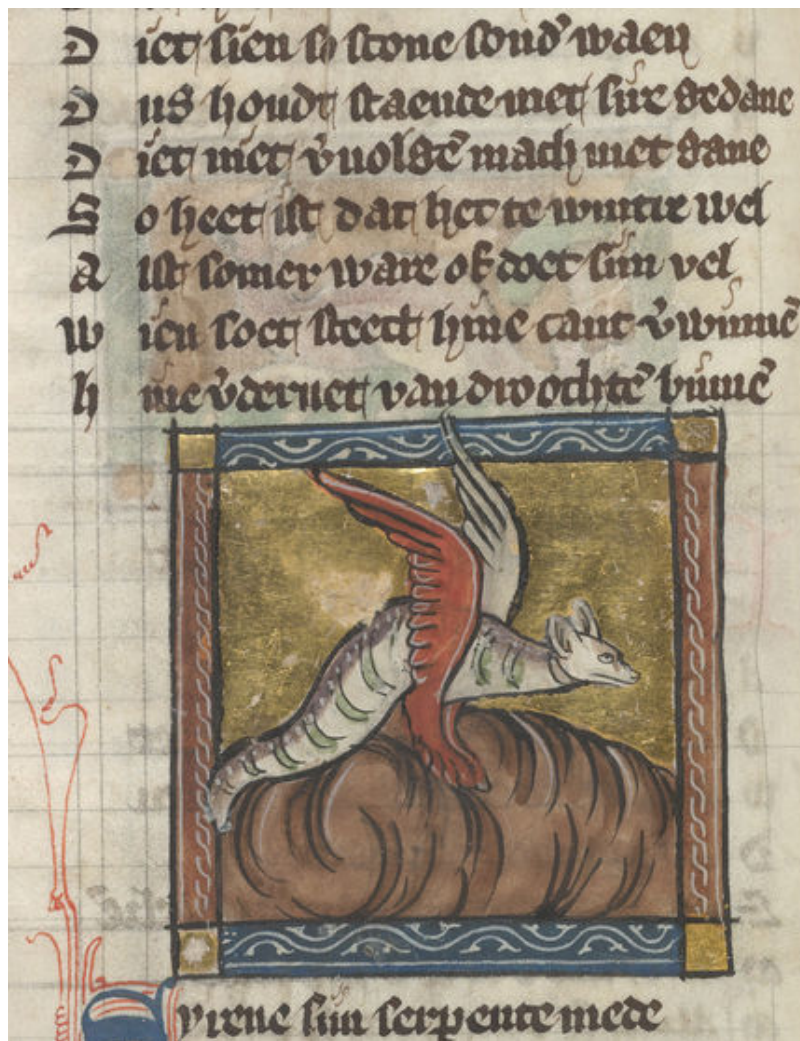 D iet sien so stone sond' waen
D us houdt staende met sire gedane
D iet niet v'uolgē mach met gane
S o heet ist dat het te wintre wel
A lst somer ware of doet sijn vel
W ien soet steect hine cant v'winnē
h ine v'dernet van drochtē binnē
Syrene sijn serpente mede